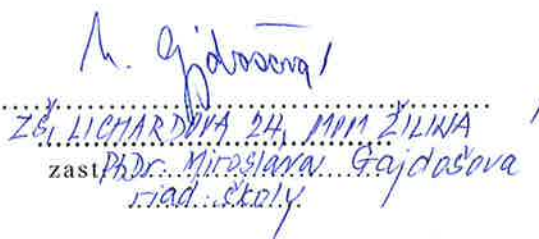 M. Gajdošová
ZŠ, LICHARDOVA 24, MPM ŽILINA
zast. PhDr. Miroslava Gajdošova
riad. školy